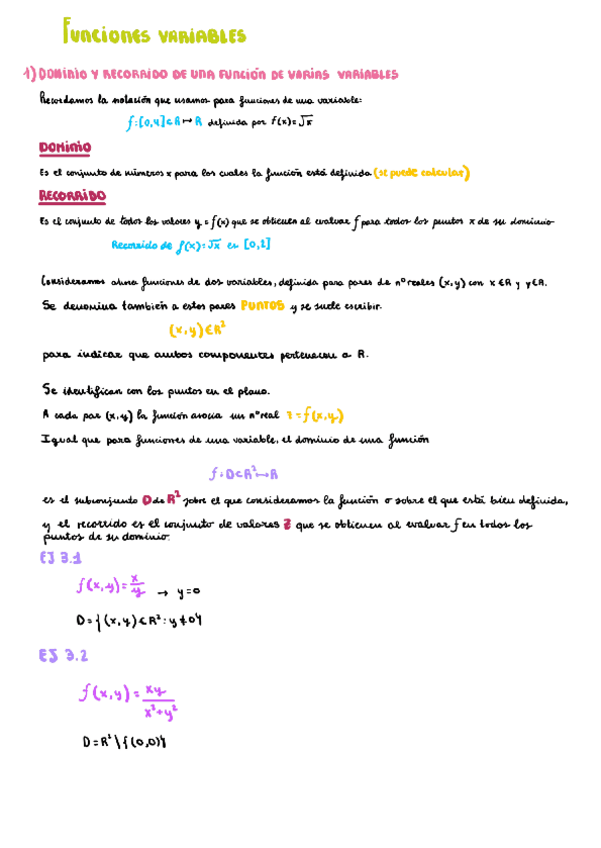 FUNCIONES VARIABLES
1) DOMINIO Y RECORRIDO DE UNA FUNCIÓN DE VARIAS VARIABLES
Recordamos la notación que usamos para funciones de una variable:
f:[0,4]⊂R↦R definida por f(x)=√x
DOMINIO
Es el conjunto de números x para los cuales la función está definida (se puede calcular)
RECORRIDO
Es el conjunto de todos los valores y=f(x) que se obtienen al evaluar f para todos los puntos x de su dominio
Recorrido de f(x)=√x es [0,2]
Consideramos ahora funciones de dos variables, definida para pares de nº reales (x,y) con x∈R y y∈R.
Se denomina también a estos pares PUNTOS y se suele escribir.
(x,y)∈R²
para indicar que ambos componentes pertenecen a R.
Se identifican con los puntos en el plano.
A cada par (x,y) la función asocia un nº real z=f(x,y)
Igual que para funciones de una variable, el dominio de una función
f:D⊂R²↦R
es el subconjunto D de R² sobre el que consideramos la función o sobre el que está bien definida,
y el recorrido es el conjunto de valores z que se obtienen al evaluar f en todos los
puntos de su dominio.
EJ 3.1
f(x,y)=x/y → y=0
D={(x,y)∈R²: y≠0}
EJ 3.2
f(x,y)=xy/(x²+y²)
D=R²\{(0,0)}